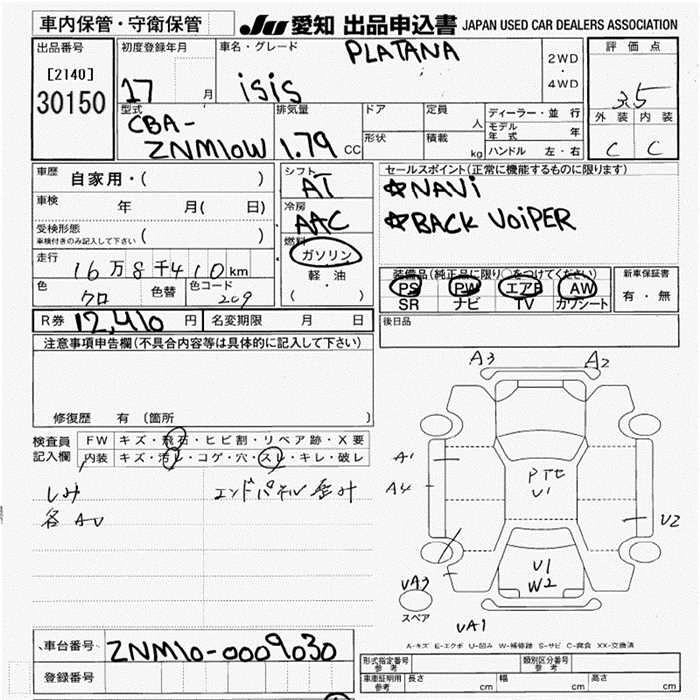 車内保管・守衛保管
JU 愛知 出品申込書 JAPAN USED CAR DEALERS ASSOCIATION
出品番号
[2140]
30150
初度登録年月
17 月
車名・グレード
PLATANA
isis
2WD
・
4WD
評価点
3.5
外装 内装
C C
型式
CBA-
ZNM10W
排気量
1.79 CC
ドア
形状
定員 人
積載 kg
ディーラー・並行
モデル年式 年
ハンドル 左・右
車歴 自家用・( )
車検 年 月( 日)
受検形態
車検付きのみ記入して下さい ( )
走行 16万8千410km
色 クロ 色替 色コード 209
シフト
AT
冷房
AAC
燃料
ガソリン
軽油
( ・ )
セールスポイント(正常に機能するものに限ります)
☆NAVi
☆BACK VOiPER
装備品(純正品に限り○をつけてください)
PS PW エアB AW
SR ナビ TV カワシート
新車保証書
有・無
R券 12,410 円 名変期限 月 日
後日品
注意事項申告欄(不具合内容等は具体的に記入して下さい)
修復歴 有 (箇所 )
検査員
記入欄
FW キズ・飛石・ヒビ割・リペア跡・X要
内装 キズ・汚レ・コゲ・穴・スレ・キレ・破レ
しみ
各AU
エンドパネル歪み
A3 A2
A1
A4
PTE
U1
U2
U1
W2
UA3
スペア
UA1
A-キズ E-エクボ U-凹み W-補修跡 S-サビ C-腐食 XX-交換済
車台番号 ZNM10-0009030
登録番号
形式指定番号
参考
類別区分番号
参考
車庫証明用
参考
長さ cm 幅 cm 高さ cm